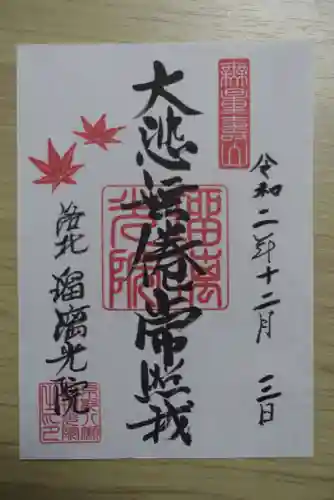 令和二年十二月三日
大悲無倦常照我
洛北 瑠璃光院